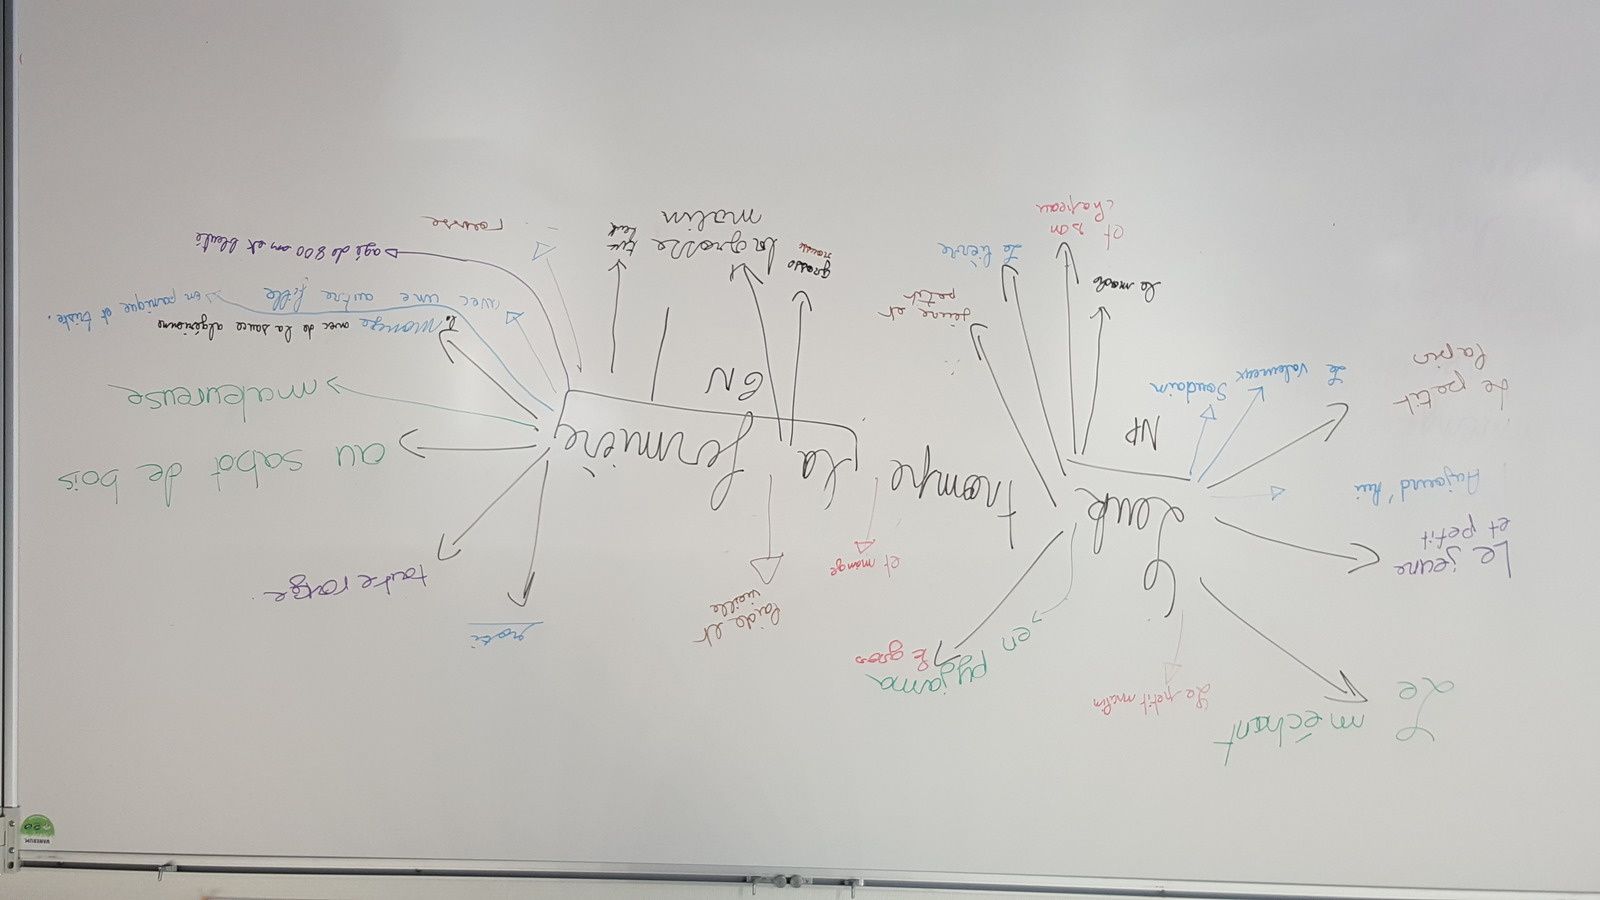 Le
méchant
Le petit malin
en
pyjama
& gros
laide et
vieille
et mange
toute rouge
Le jeune
et petit
Aujourd'hui
Leuk
trompe la fermière
au sabot de bois
maleureuse
Le petit
lapin
Le valeureux
Soudain
NP
GN
mange avec de la sauce algérienne
avec une autre fille
en panique et triste.
agé de 800 ans et
jeune et
petit
Le lièvre
et son
chapeau
grosse
la grosse
malin
rousse